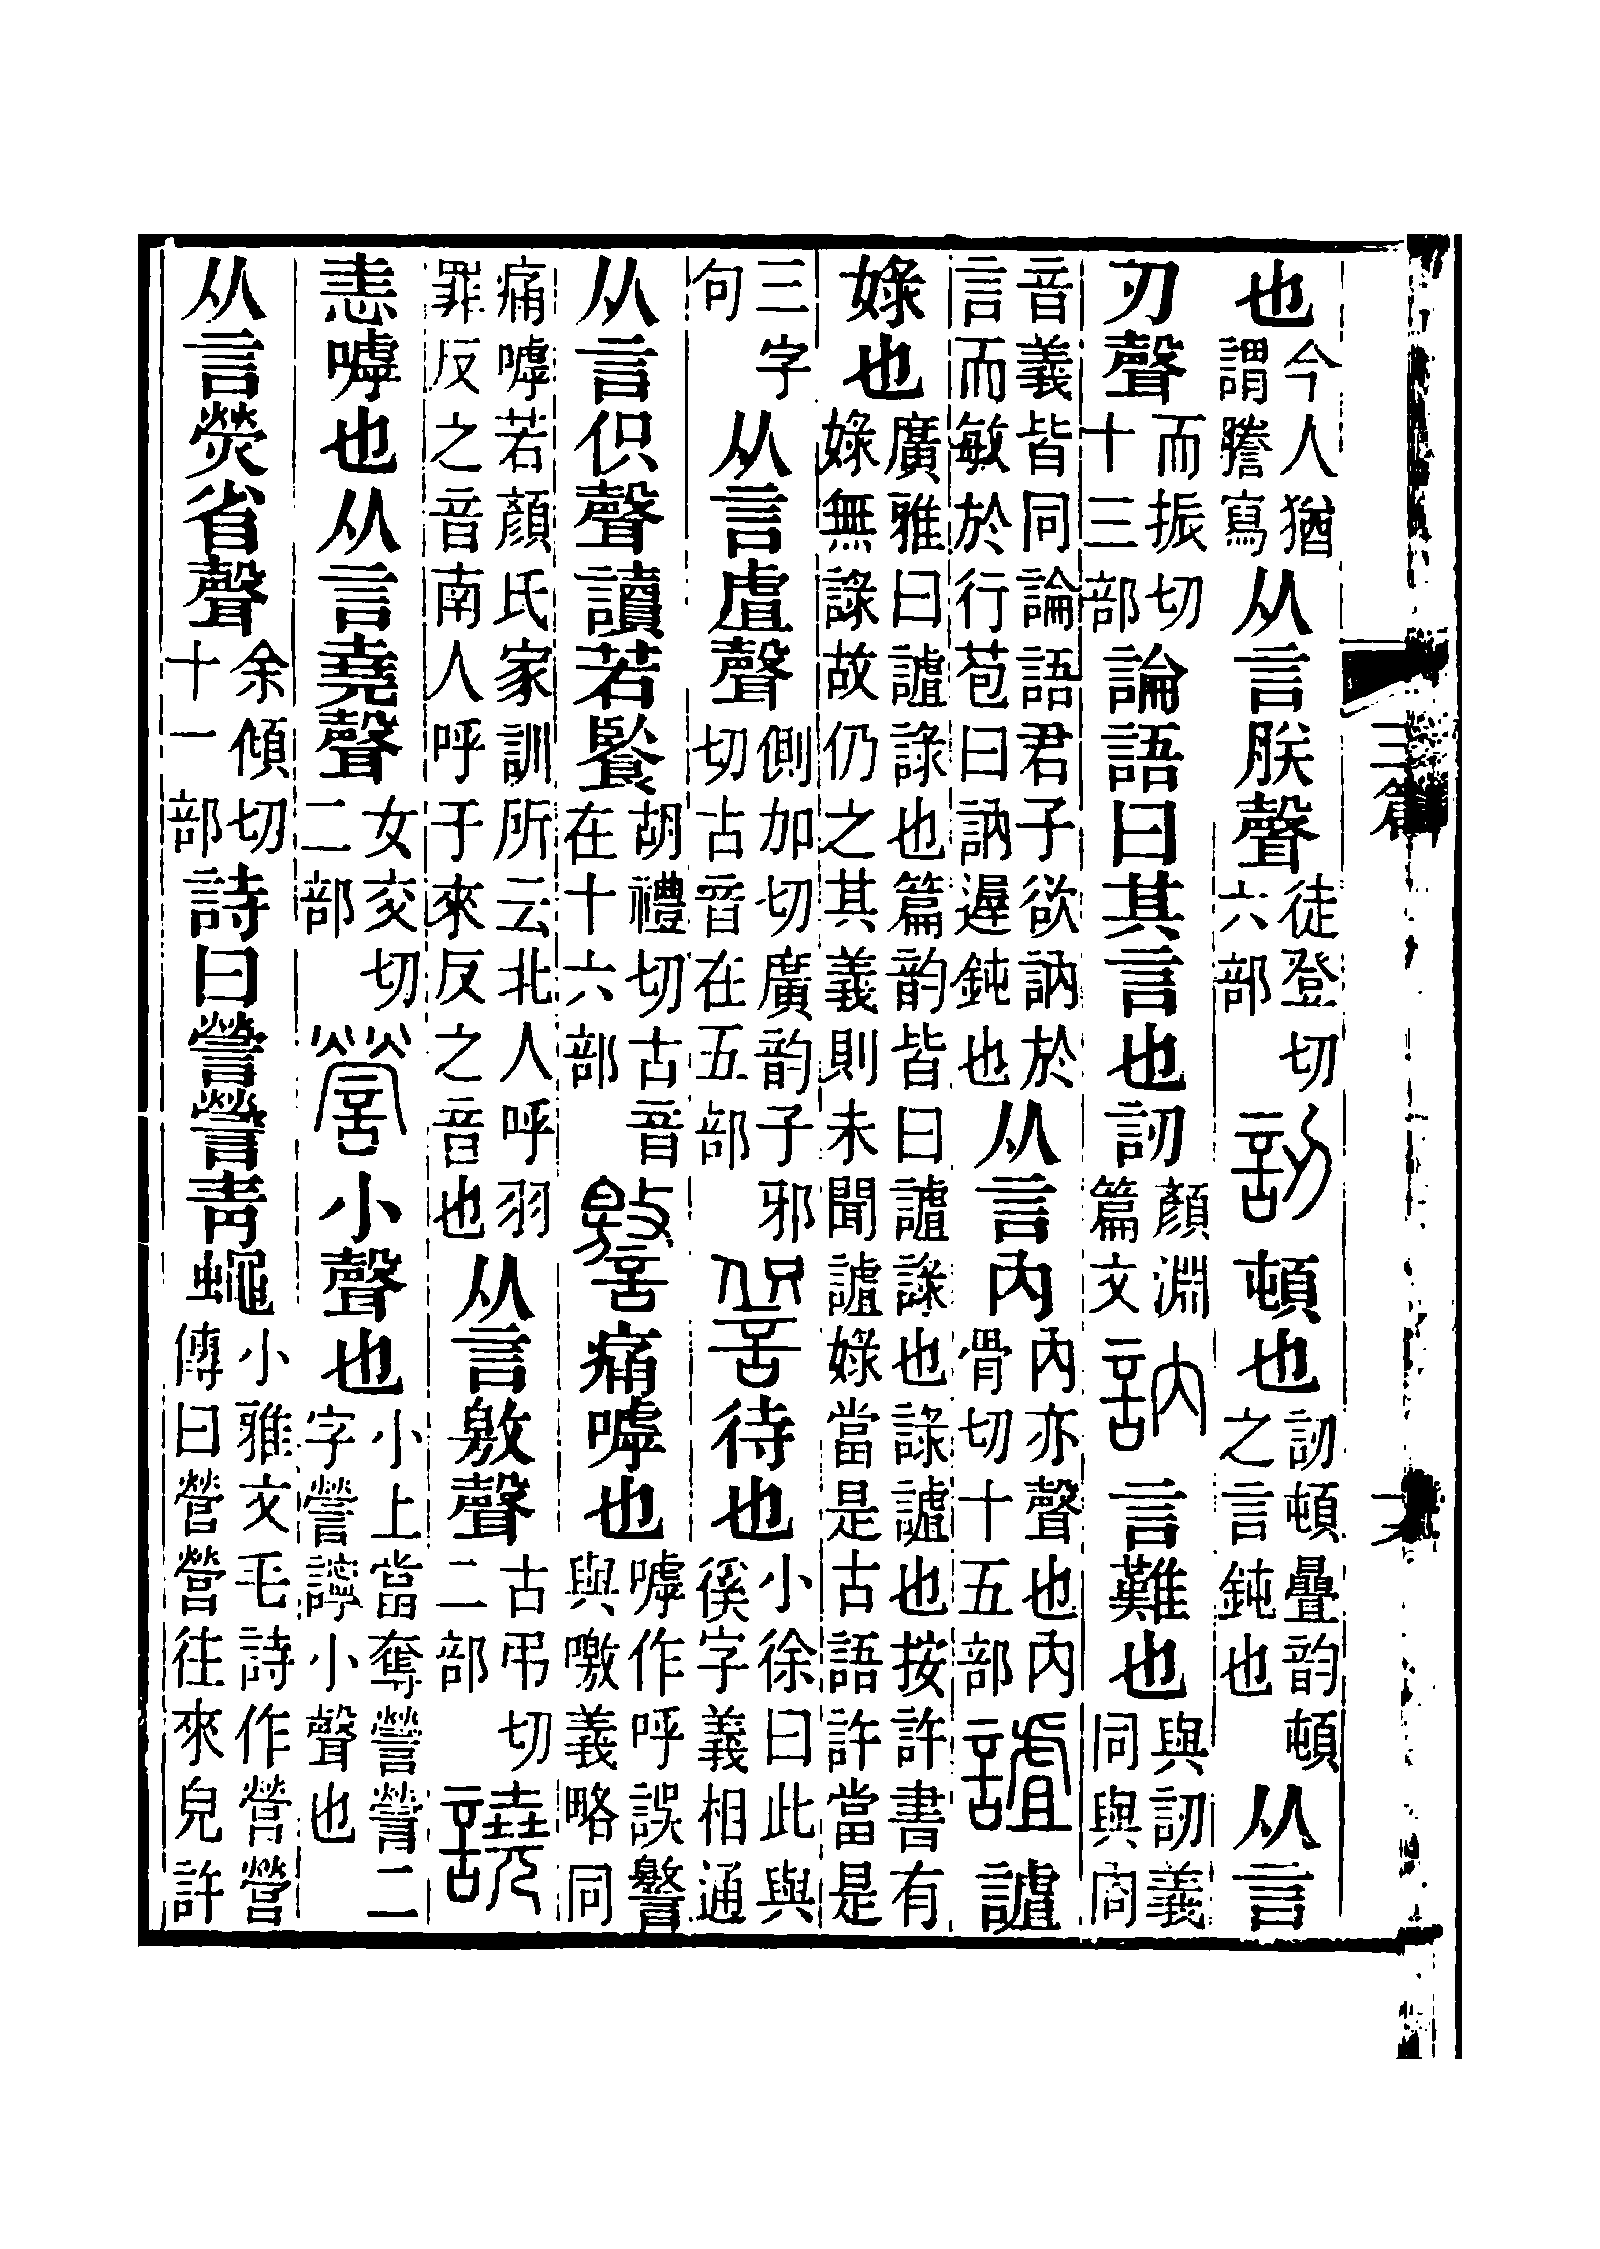 也今人猶謂謄寫从言朕聲徒登切六部訒頓也訒頓曡韵頓之言鈍也从言
刃聲而振切十三部論語曰其言也訒顏淵篇文訥言難也與訒義同與㕯
音義皆同論語君子欲訥於言而敏於行苞曰訥遲鈍也从言內內亦聲也內骨切十五部謯謯
娽也廣雅曰謯䛃也篇韵皆曰謯䛃也䛃謯也按許書有娽無䛃故仍之其義則未聞謯娽當是古語許當是
三字句从言虘聲側加切廣韵子邪切古音在五部䚷待也小徐曰此與徯字義相通
从言伿聲讀若䭇胡禮切古音在十六部譥痛嘑也嘑作呼誤譥與噭義略同
痛嘑若顏氏家訓所云北人呼羽罪反之音南人呼于來反之音也从言敫聲古弔切二部譊
恚嘑也从言堯聲女交切二部謍小聲也小上當奪謍謍二字謍小聲也
从言熒省聲余傾切十一部詩曰謍謍靑蠅小雅文毛詩作營營傳曰營營往來皃許
三篇